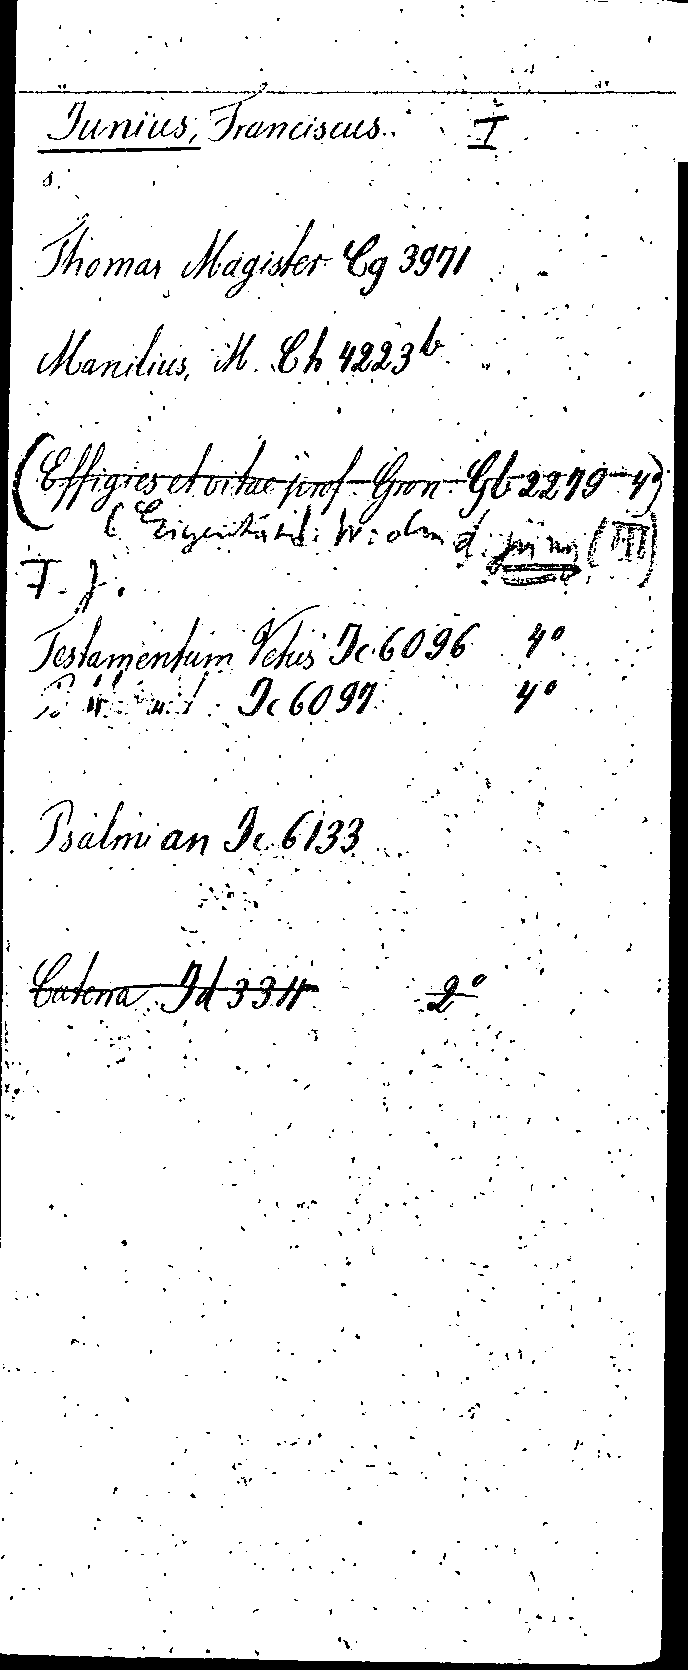 Junius, Franciscus. I
s.
Thomas Magister Cg 3971
Manilius, M. Ch 4223b
(Effigies et vitae prof. Gron. Gb 2279 4°)
( d. jüng (III)
F. J.
Testamentum Vetus Ic 6096 4°
Ic 6097 4°
Psalmi an Ic 6133
Catena Id 3311 2°